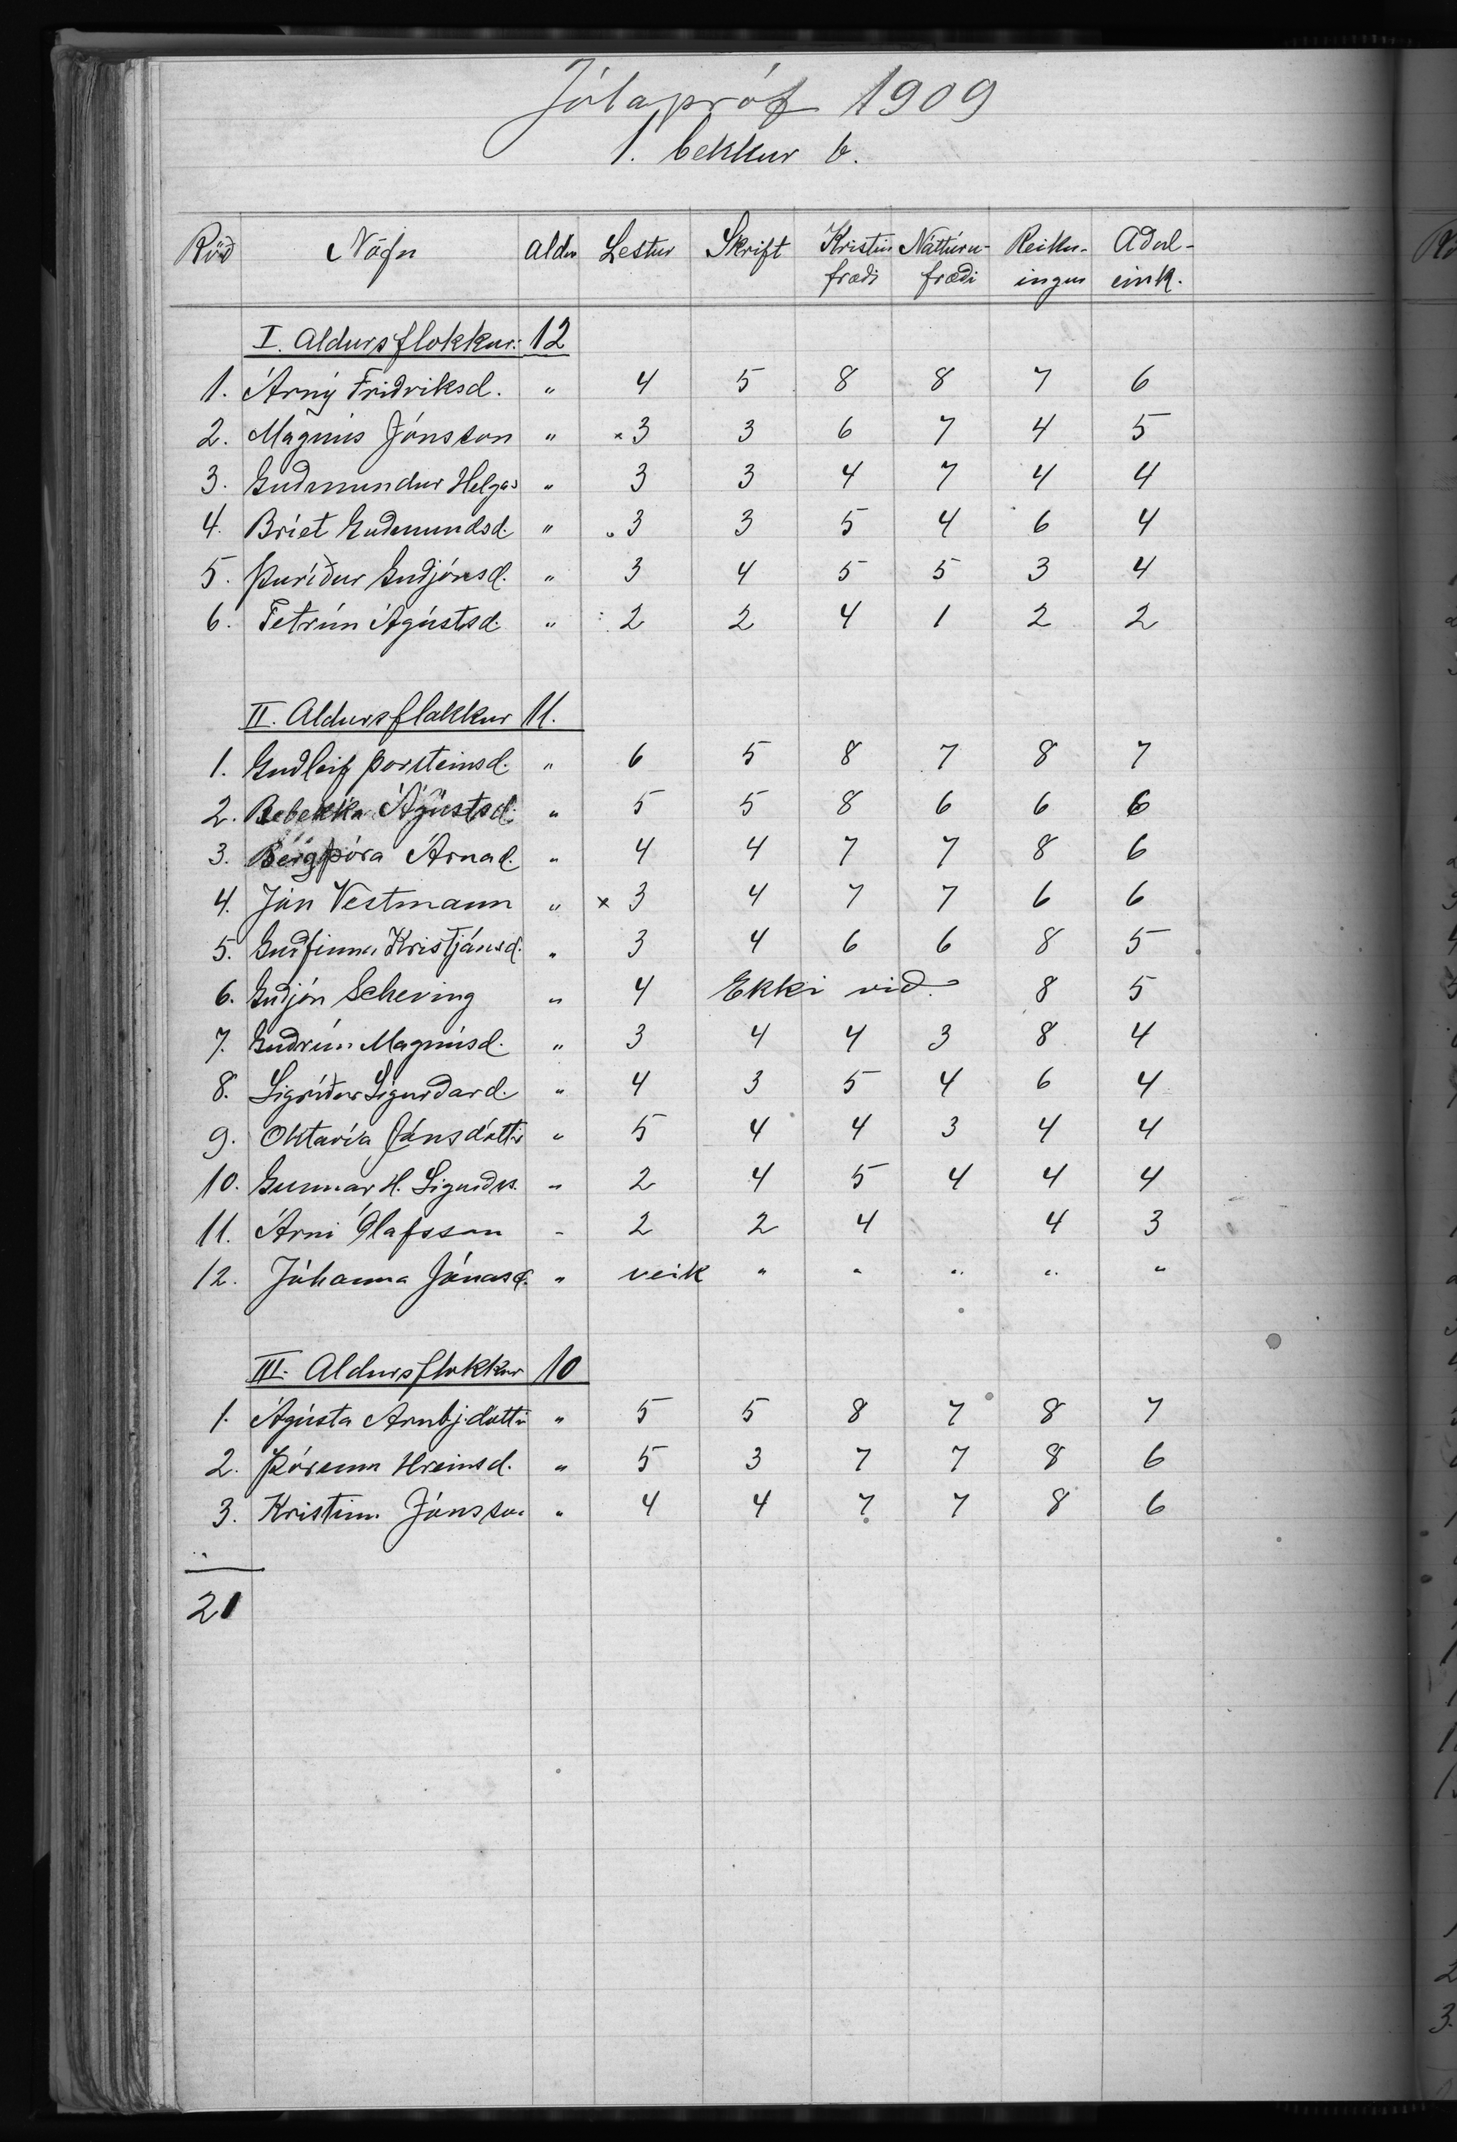 Jólapróf 1909
1. bekkur b.
Röð Nöfn aldur Lestur Skrift Kristinfræði Náttúru-fræði Reikn-ingur Aðal-eink.
I. Aldursflokkur: 12
1. Árný Friðriksd. " 4 5 8 8 7 6
2. Magnús Jónsson " ×3 3 6 7 4 5
3. Guðmundur Helgas " 3 3 4 7 4 4
4. Bríet Guðmundsd. " 3 3 5 4 6 4
5. Þuríður Guðjónsd. " 3 4 5 5 3 4
6. Petrún Ágústsd. " 2 2 4 1 2 2
II. Aldursflokkur 11.
1. Guðleif Þorsteinsd. " 6 5 8 7 8 7
2. Rebekka Ágústsd. " 5 5 8 6 6 6
3. Bergþóra Árnad. " 4 4 7 7 8 6
4. Jón Vestmann " × 3 4 7 7 6 6
5. Guðfinna Kristjánsd. " 3 4 6 6 8 5
6. Guðjón Scheving " 4 Ekki við. 8 5
7. Guðrún Magnúsd. " 3 4 4 3 8 4
8. Sigríður Sigurðard. " 4 3 5 4 6 4
9. Oktavía Jónsdóttir " 5 4 4 3 4 4
10. Gunnar H. Sigurðss. " 2 4 5 4 4 4
11. Árni Ólafsson - 2 2 4 4 3
12. Jóhanna Jónasd. " veik " " " " "
III. Aldursflokkur 10
1. Ágústa Arnbj.dóttir " 5 5 8 7 8 7
2. Þórunn Hreinsd. " 5 3 7 7 8 6
3. Kristinn Jónsson " 4 4 7 7 8 6
21